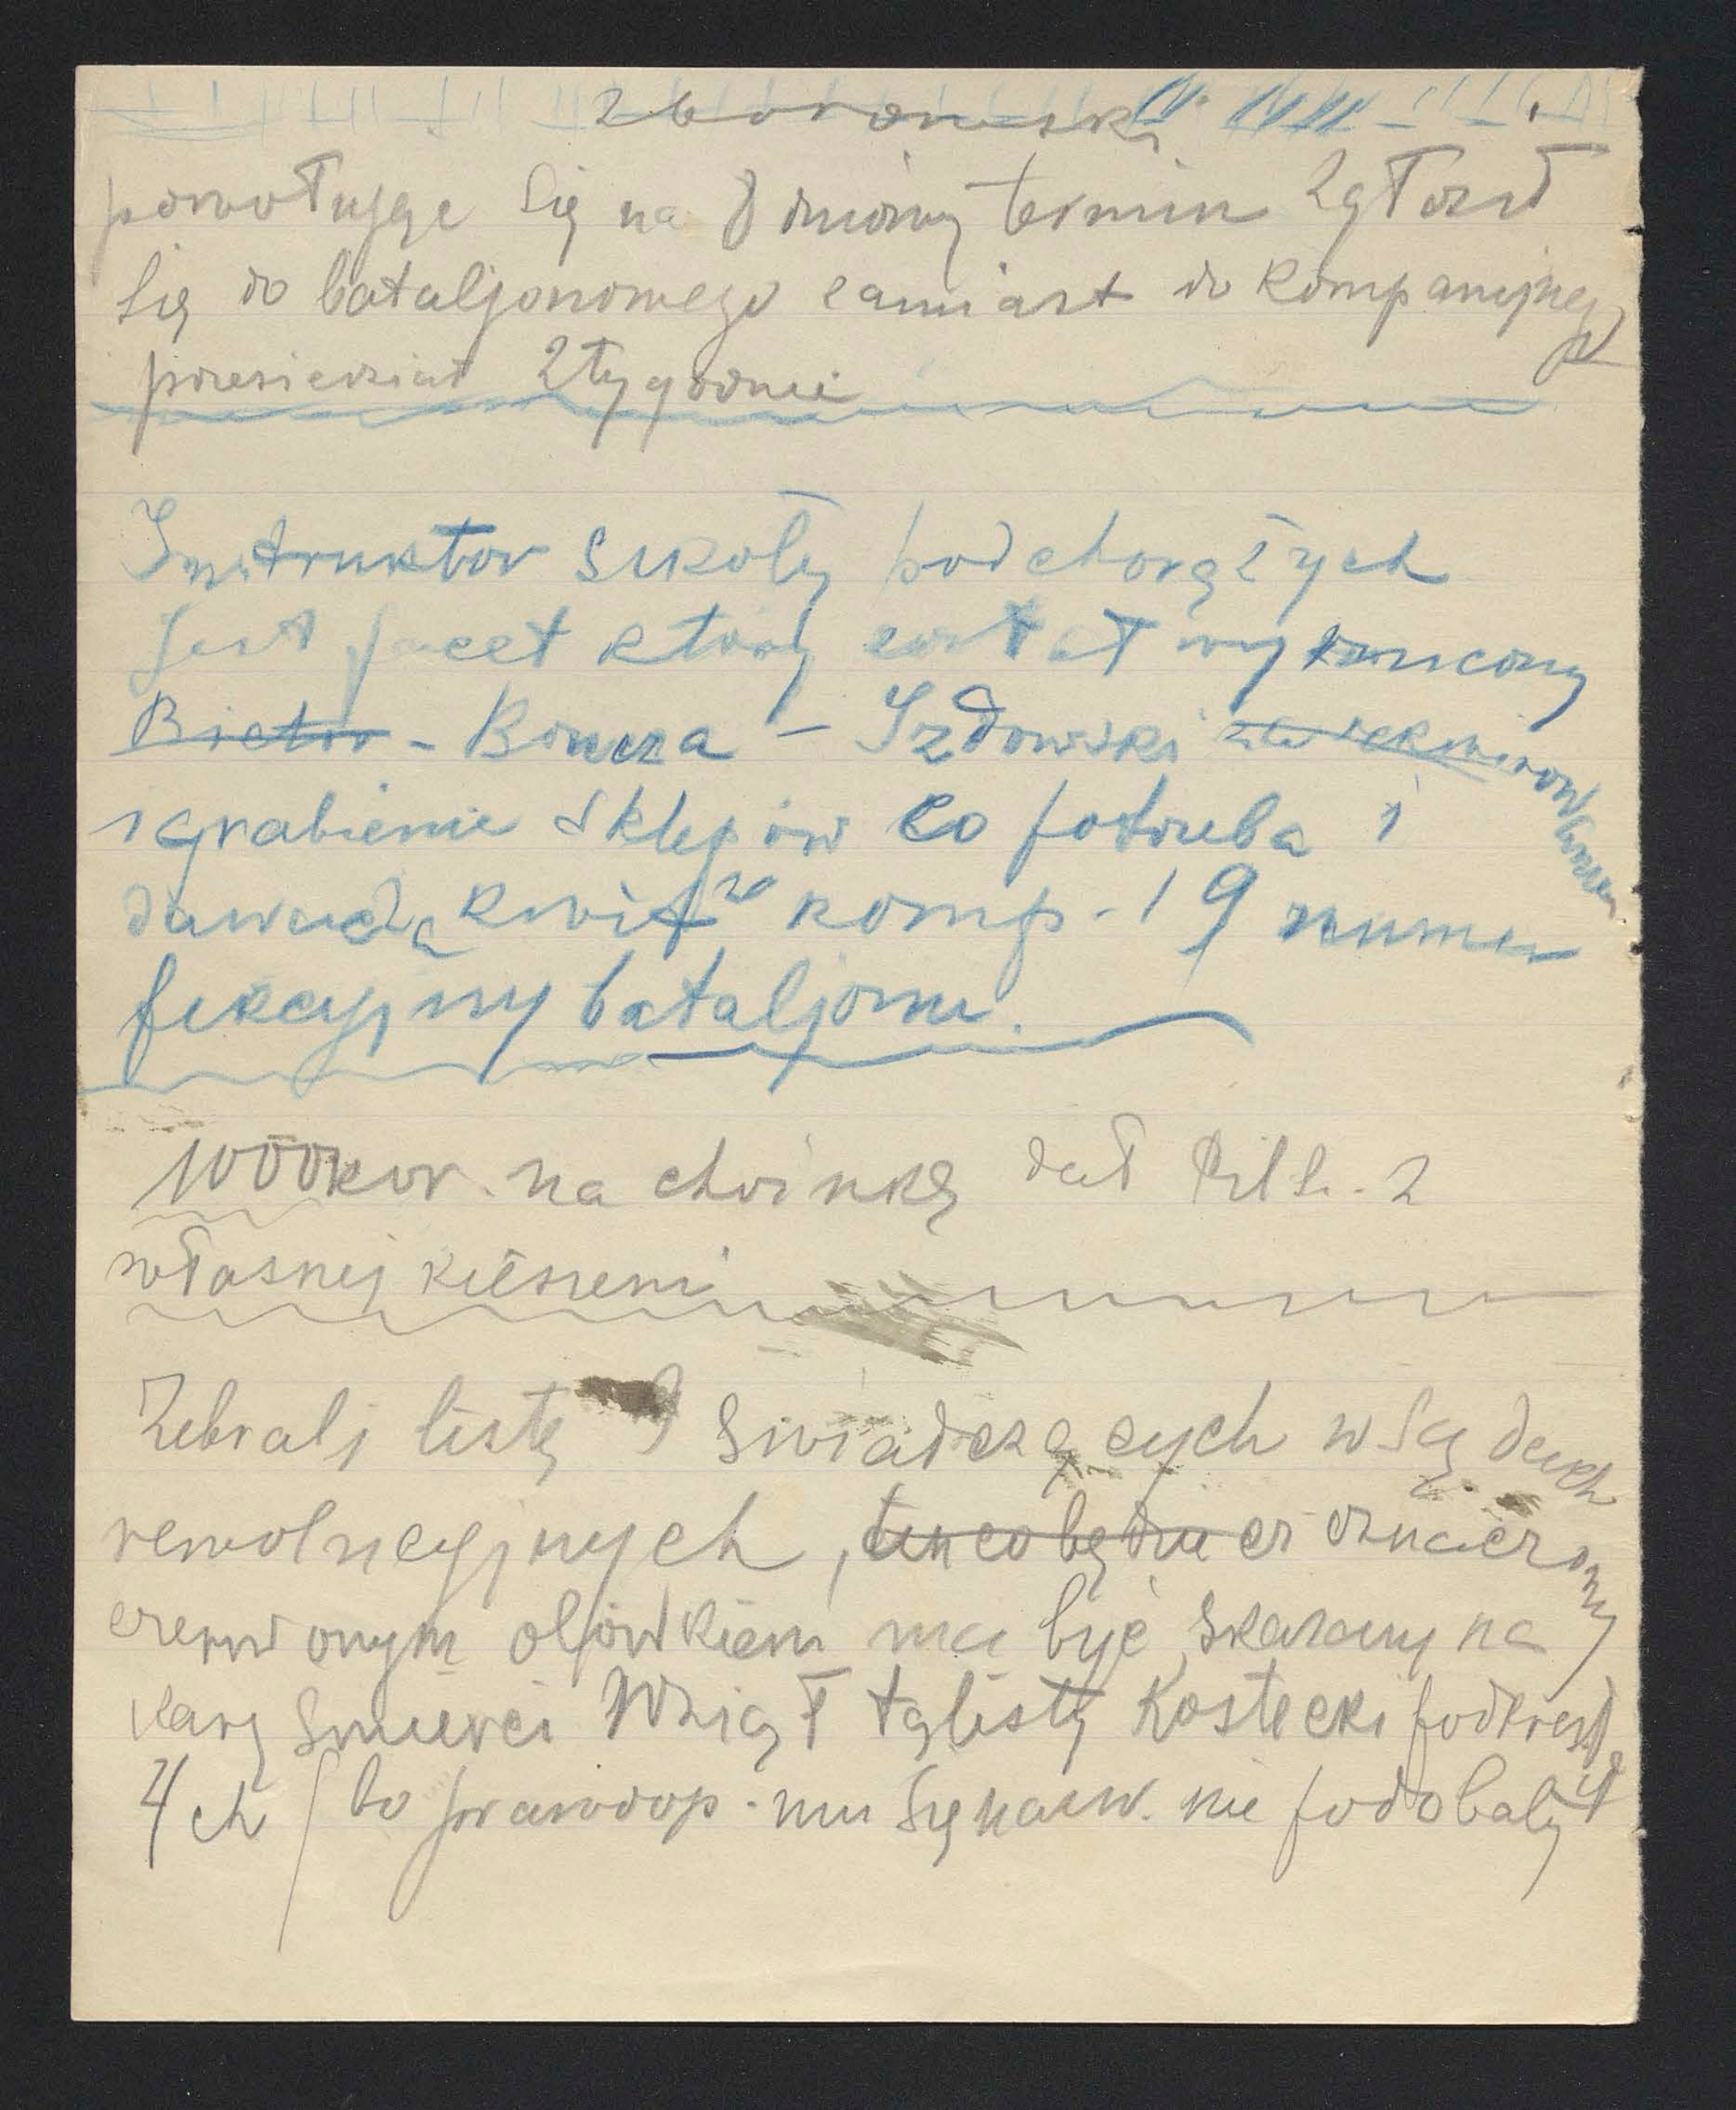 Zborowski
powołując się na 8 dniowy termin zgłosił
się do bataljonowego zamiast do kompanijnego
przesiedział 2 tygodnie
Instruktor szkoły podchorążych
jest facet który został wyrzucony
Boncza - Izdowski rekwirow
i grabienie sklepów co potrzeba i
kwit komp. 19 numer
fikcyjny bataljonu.
1000 kor. na choinkę dał Pils. z
własnej kieszeni
Zebrali listę świadczących w sądach
rewolucyjnych, ten co będzie oznaczony
czerwonym ołówkiem ma być skazany na
karę śmierci Wziął tę listę Kostecki podkreślił
4 ch / bo prawdop. mu się nazw. nie podobały